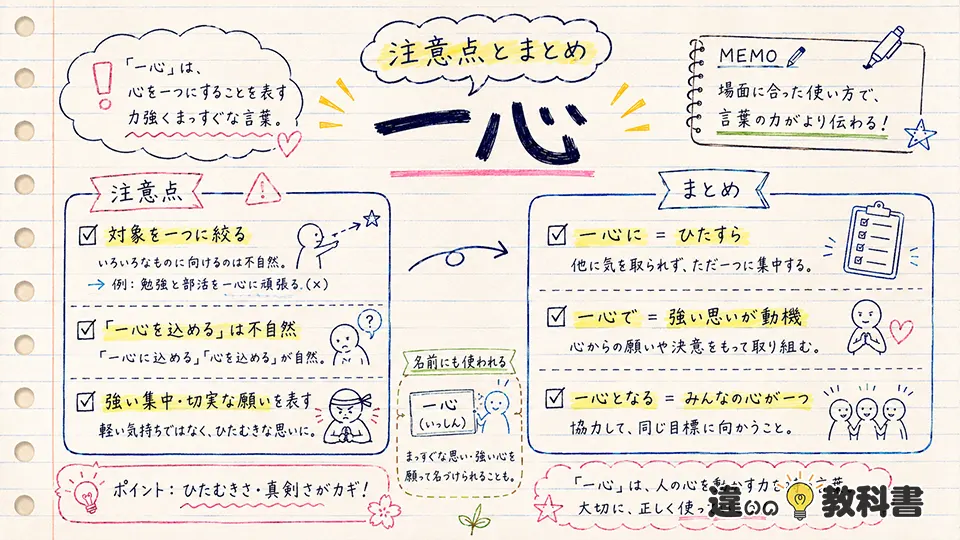 注意点とまとめ
一心
「一心」は、
心を一つにすることを表す
力強くまっすぐな言葉。
MEMO
場面に合った使い方で、
言葉の力がより伝わる!
注意点
対象を一つに絞る
いろいろなものに向けるのは不自然。
→ 例:勉強と部活を一心に頑張る。(×)
「一心を込める」は不自然
「一心に込める」「心を込める」が自然。
強い集中・切実な願いを表す
軽い気持ちではなく、ひたむきな思いに。
ポイント:ひたむきさ・真剣さがカギ!
名前にも使われる
一心
(いっしん)
まっすぐな思い・強い心を
願って名づけられることも。
まとめ
一心に = ひたすら
他に気を取られず、ただ一つに集中する。
一心で = 強い思いが動機
心からの願いや決意をもって取り組む。
一心となる = みんなの心が一つ
協力して、同じ目標に向かうこと。
「一心」は、人の心を動かす力を 言葉
大切に、正しく使っ
違いの教科書